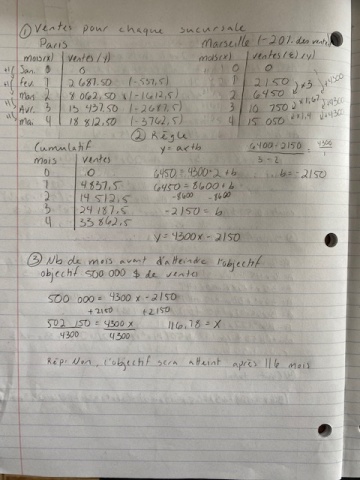 ① Ventes pour chaque sucursale
Paris Marseille (-20% des ventes)
mois(x) ventes (y) mois(x) ventes (y)
Jan. 0 0 0 0
fev. 1 2 687.50 (-537,5) 1 2150
Mar. 2 8 062,50 (-1612,5) 2 6450
Avr. 3 13 437.50 (-2687,5) 3 10 750
Mai. 4 18 812.50 (-3762,5) 4 15 050
② Règle
Cumulatif y=ax+b 6400-2150 = 4300
mois ventes 3-2 1
0 0 6450=4300·2+b b=-2150
1 4837,5 6450=8600+b
2 14 512,5 -8600 -8600
3 24 187,5 -2150=b
4 33 862,5
y=4300x-2150
③ Nb de mois avant d'atteindre l'objectif
objectif 500 000 $ de ventes
500 000=4300x-2150
+2150 +2150
502 150=4300x 116.78=x
4300 4300
Rép: Non, l'objectif sera atteint après 116 mois